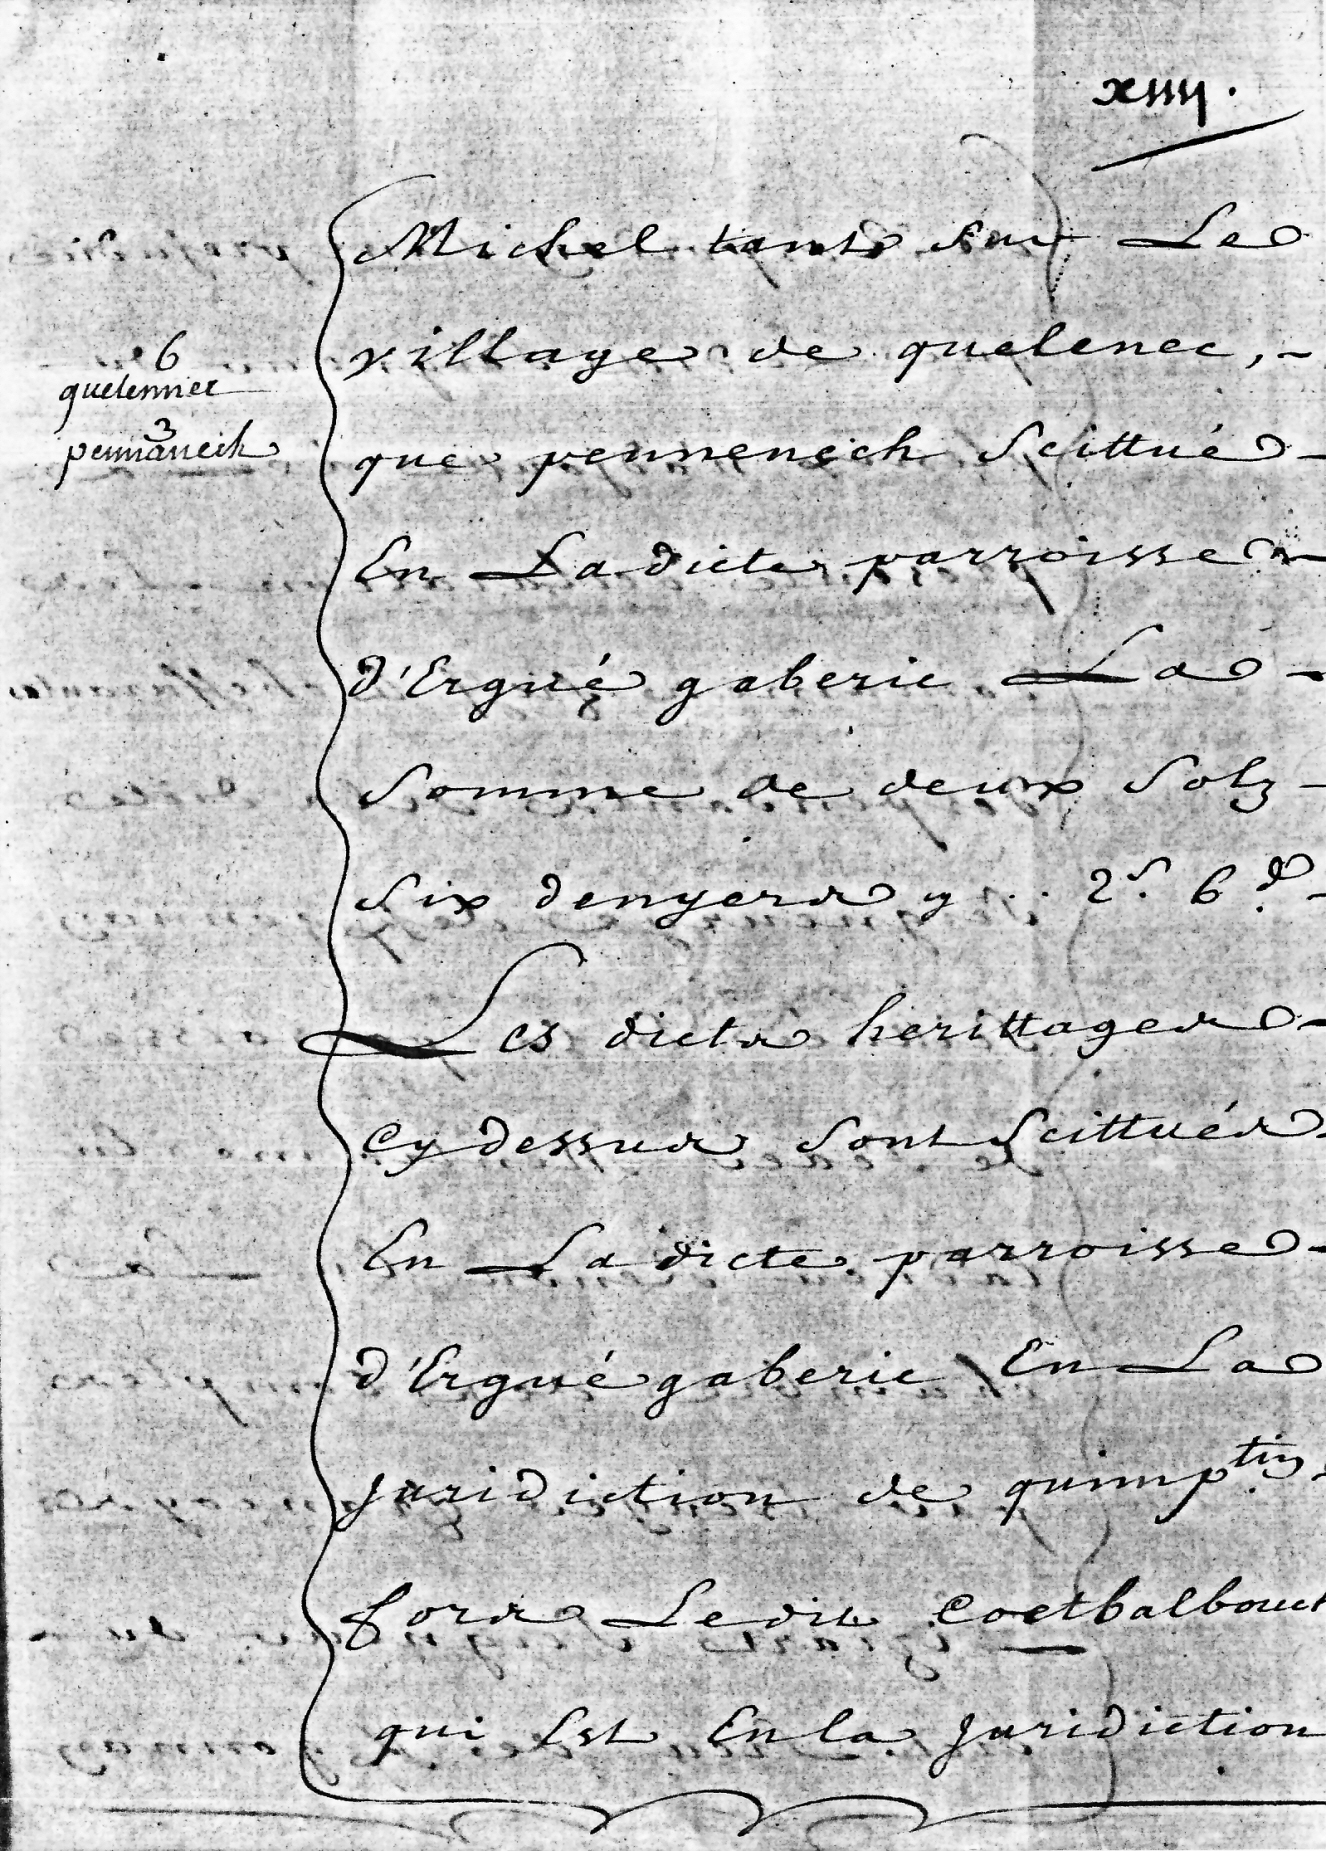 xiiii.
Michel tant sur Le
village de quelenec,
6
quelennec
que pennenech scittué
3
pennanech
En La dicte parroisse
d'Ergué gaberic La
somme de deux solz
six denyers y .. 2s. 6d.
Les dicts herittages
cy dessus sont scittués
En La dicte parroisse
d'Ergué gaberic En La
juridiction de quimptin
fors Ledit Coetbalbouch
qui Est En la juridiction